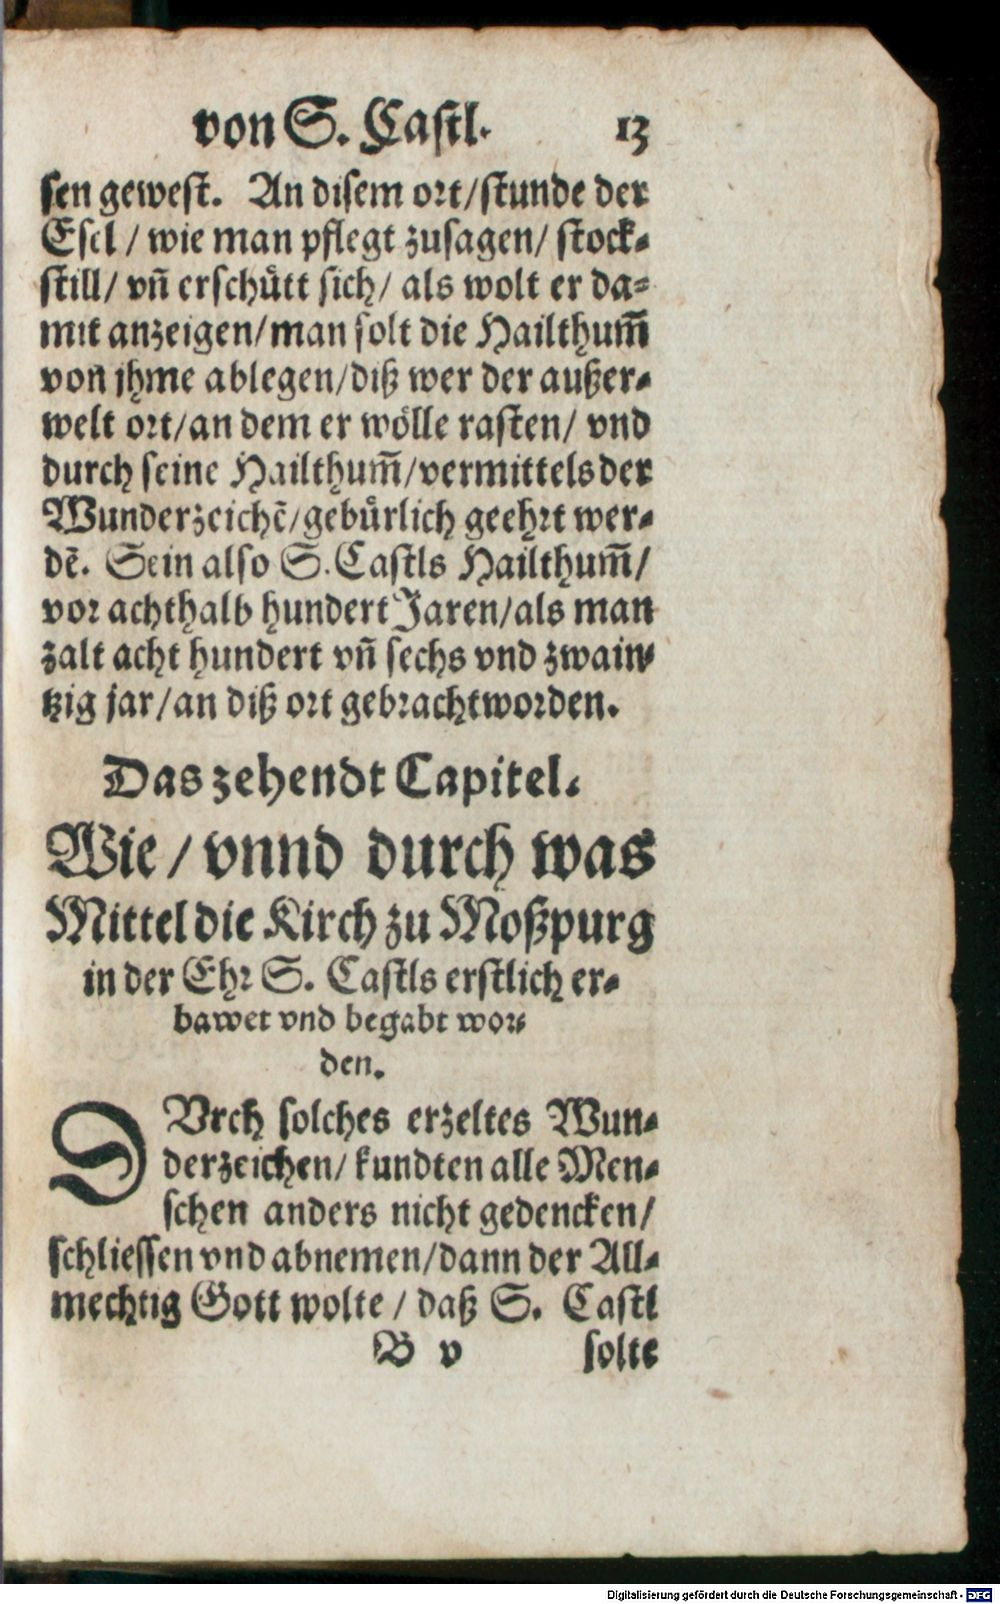 von S. Castl. 13
sen gewest. An disem ort/stunde der
Esel / wie man pflegt zusagen/ stock-
still/ vñ erschütt sich/ als wolt er da-
mit anzeigen/man solt die Hailthum̃
von jhme ablegen/diß wer der außer-
welt ort/an dem er wölle rasten/ vnd
durch seine Hailthum̃/vermittels der
Wunderzeichẽ/gebürlich geehrt wer-
dẽ. Sein also S. Castls Hailthum̃/
vor achthalb hundert Jaren/als man
zalt acht hundert vñ sechs vnd zwain-
tzig jar/an diß ort gebracht worden.
Das zehendt Capitel.
Wie / vnnd durch was
Mittel die Kirch zu Moßpurg
in der Ehr S. Castls erstlich er-
bawet vnd begabt wor-
den.
DVrch solches erzeltes Wun-
derzeichen/ kundten alle Men-
schen anders nicht gedencken/
schliessen vnd abnemen/dann der All-
mechtig Gott wolte / daß S. Castl
B v solte
Digitalisierung gefördert durch die Deutsche Forschungsgemeinschaft - DFG